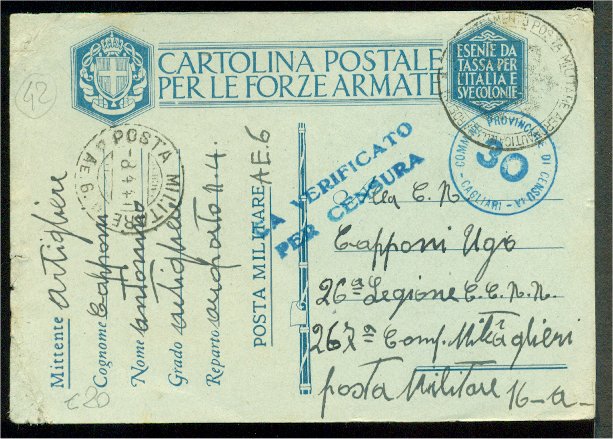 42
CARTOLINA POSTALE
PER LE FORZE ARMATE
ESENTE DA
TASSA PER
L'ITALIA E
SVE COLONIE
POSTA MILITARE
-8.4.41
PROVINC DI CENSURA
30
CAGLIARI
VERIFICATO
PER CENSURA
Mittente Artigliere
Cognome Capponi
Nome Antonio
Grado Artigliere
Reparto Aeroporto N. 4.
POSTA MILITARE A.E.6
alla C. N.
Capponi Ugo
26ª Legione C.C.N.N.
267ª Comp. Mitraglieri
posta Militare 16-a-
€20